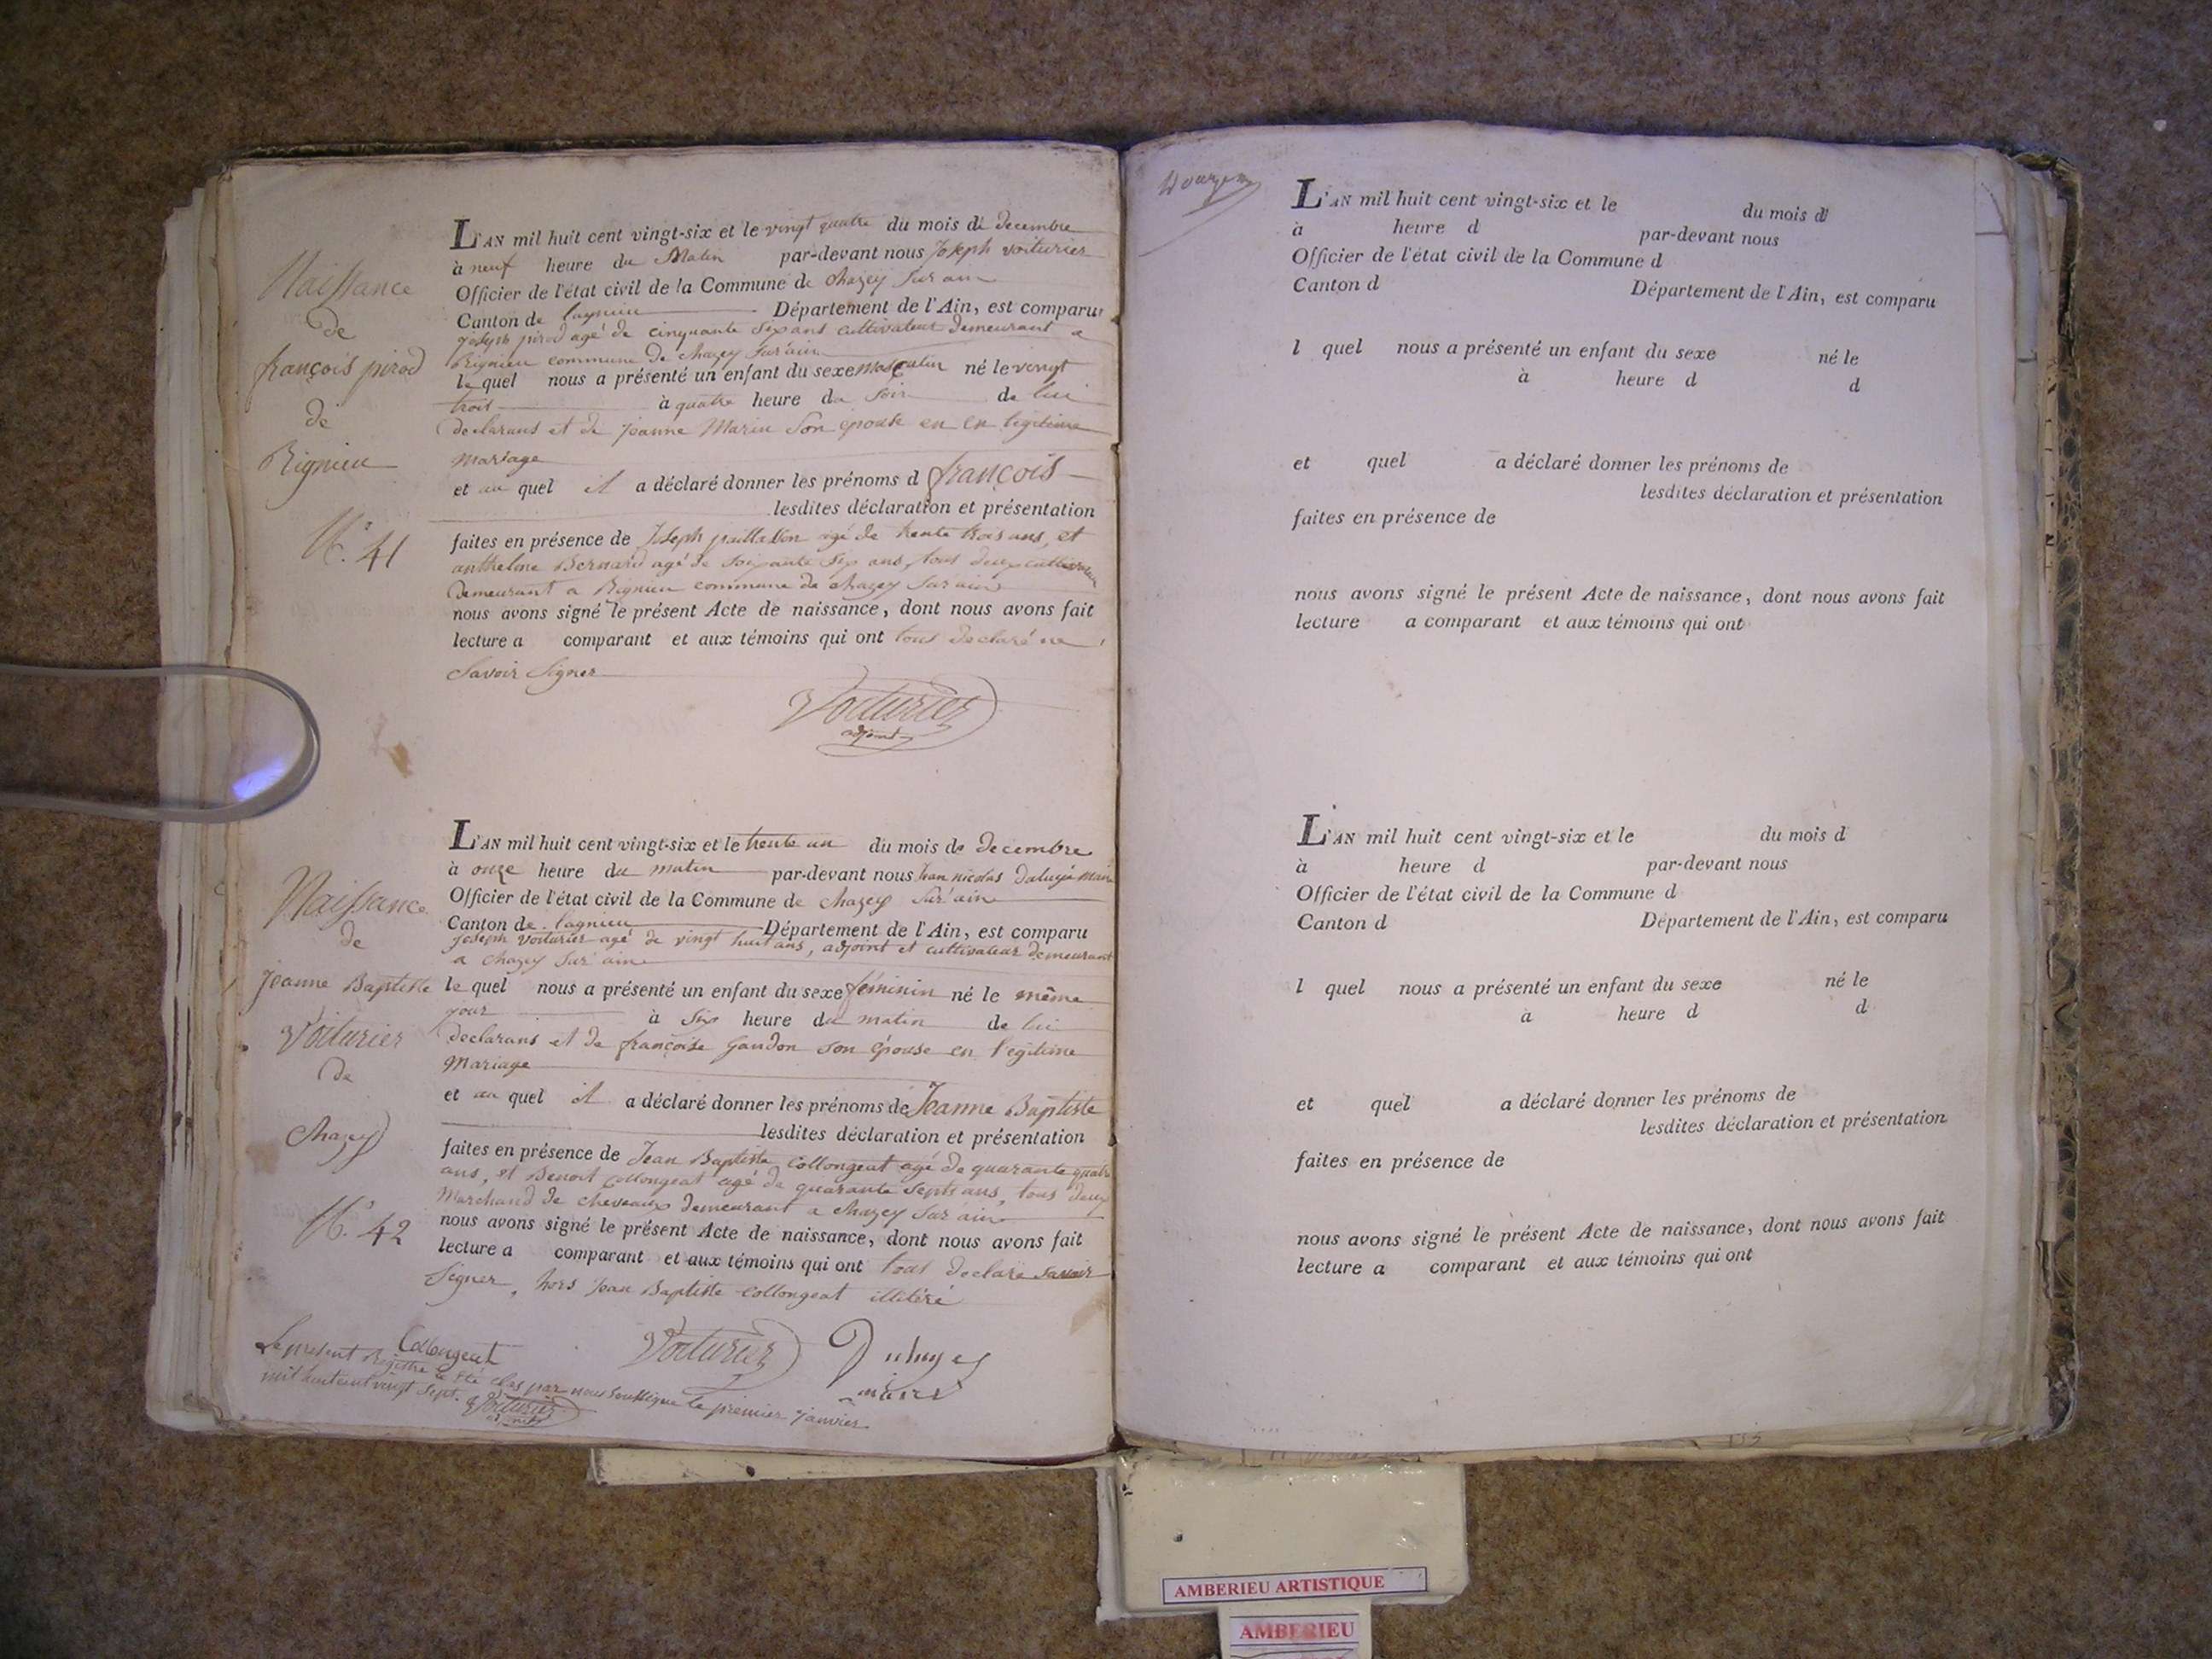 Naissance
de
françois pirod
de
Rignieu
N.° 41
L'AN mil huit cent vingt-six et le vingt quatre du mois de decembre
à neuf heure du Matin par-devant nous Joseph voiturier
Officier de l'état civil de la Commune de chazey Sur ain
Canton de lagnieu Département de l'Ain, est comparu
joseph pirod agé de cinquante six ans cultivateur demeurant a
Rignieu commune de chazey Sur ain
le quel nous a présenté un enfant du sexe masculin né le vingt
trois à quatre heure du Soir de lui
declarans et de jeanne Marin Son epouse en en legitime
mariage
et au quel il a déclaré donner les prénoms d françois
lesdites déclaration et présentation
faites en présence de Joseph agé de trente trois ans, et
anthelme Bernard agé de Soixante Six ans, tous deux cultivateurs
demeurant a Rignieu commune de chazey Sur ain
nous avons signé le présent Acte de naissance, dont nous avons fait
lecture a comparant et aux témoins qui ont tous declaré ne
Savoir Signer
Voiturier
adjoint
Naissance
de
jeanne Baptiste
Voiturier
de
chazey
N.° 42
L'AN mil huit cent vingt-six et le trente un du mois de decembre
à onze heure du matin par-devant nous jean nicolas maire
Officier de l'état civil de la Commune de chazey Sur ain
Canton de lagnieu Département de l'Ain, est comparu
joseph Voiturier agé de vingt huit ans, adjoint et cultivateur demeurant
a chazey Sur ain
le quel nous a présenté un enfant du sexe féminin né le même
jour à Six heure du matin de lui
declarans et de françoise gaudon son épouse en legitime
mariage
et au quel il a déclaré donner les prénoms de Jeanne Baptiste
lesdites déclaration et présentation
faites en présence de Jean Baptiste Collongeat agé de quarante quatre
ans, et Benoit Collongeat agé de quarante Septs ans, tous deux
Marchand de cheveaux demeurant a chazey Sur ain
nous avons signé le présent Acte de naissance, dont nous avons fait
lecture a comparant et aux témoins qui ont tous declaré savoir
Signer, hors jean Baptiste Collongeat illitéré
Collongeat Voiturier
maire
Le present Registre a été clos par nous Soussigné le premier janvier
mil huit cent vingt Sept. Voiturier
adjoint
L'AN mil huit cent vingt-six et le du mois d
à heure d par-devant nous
Officier de l'état civil de la Commune d
Canton d Département de l'Ain, est comparu
l quel nous a présenté un enfant du sexe né le
à heure d d
et quel a déclaré donner les prénoms de
lesdites déclaration et présentation
faites en présence de
nous avons signé le présent Acte de naissance, dont nous avons fait
lecture a comparant et aux témoins qui ont
L'AN mil huit cent vingt-six et le du mois d
à heure d par-devant nous
Officier de l'état civil de la Commune d
Canton d Département de l'Ain, est comparu
l quel nous a présenté un enfant du sexe né le
à heure d d
et quel a déclaré donner les prénoms de
lesdites déclaration et présentation
faites en présence de
nous avons signé le présent Acte de naissance, dont nous avons fait
lecture a comparant et aux témoins qui ont
AMBERIEU ARTISTIQUE
AMBERIEU